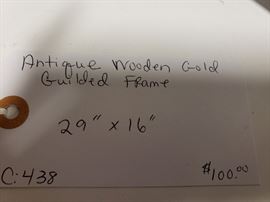 Antique Wooden Gold
Guilded Frame
29" x 16"
C:438
$100.00